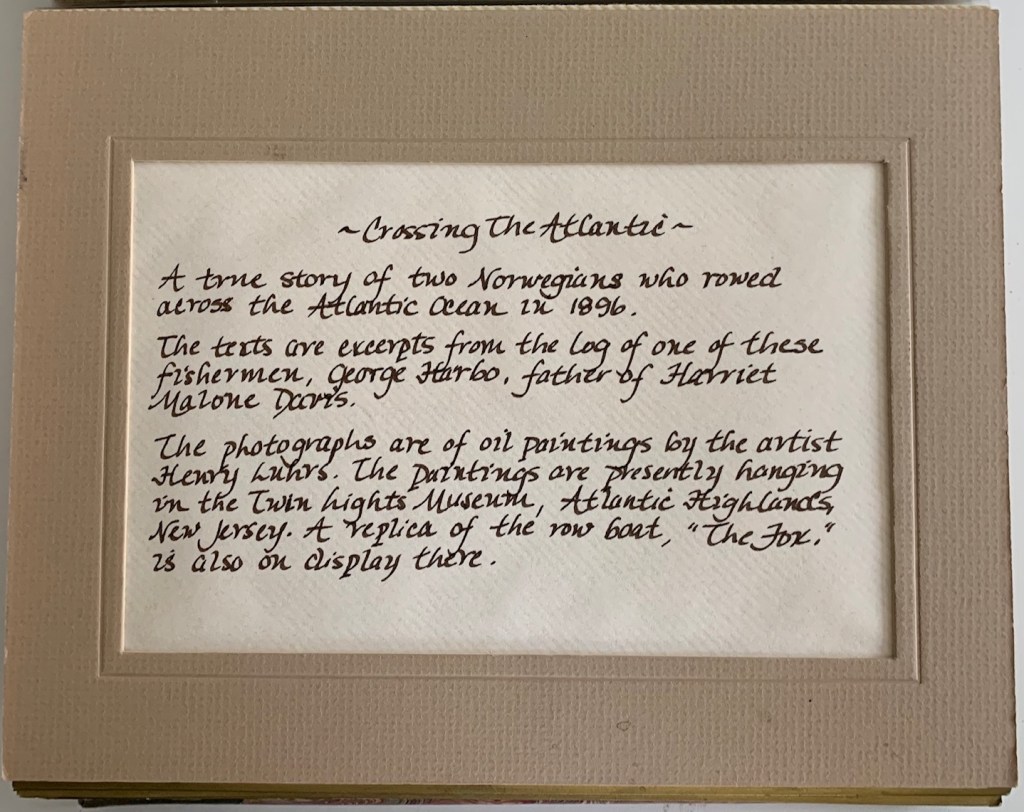 ~Crossing The Atlantic~
A true story of two Norwegians who rowed
across the Atlantic Ocean in 1896.
The texts are excerpts from the log of one of these
fishermen, George Harbo, father of Harriet
Malone Davis.
The photographs are of oil paintings by the artist
Henry Luhrs. The paintings are presently hanging
in the Twin Lights Museum, Atlantic Highlands,
New Jersey. A replica of the row boat, "The Fox,"
is also on display there.